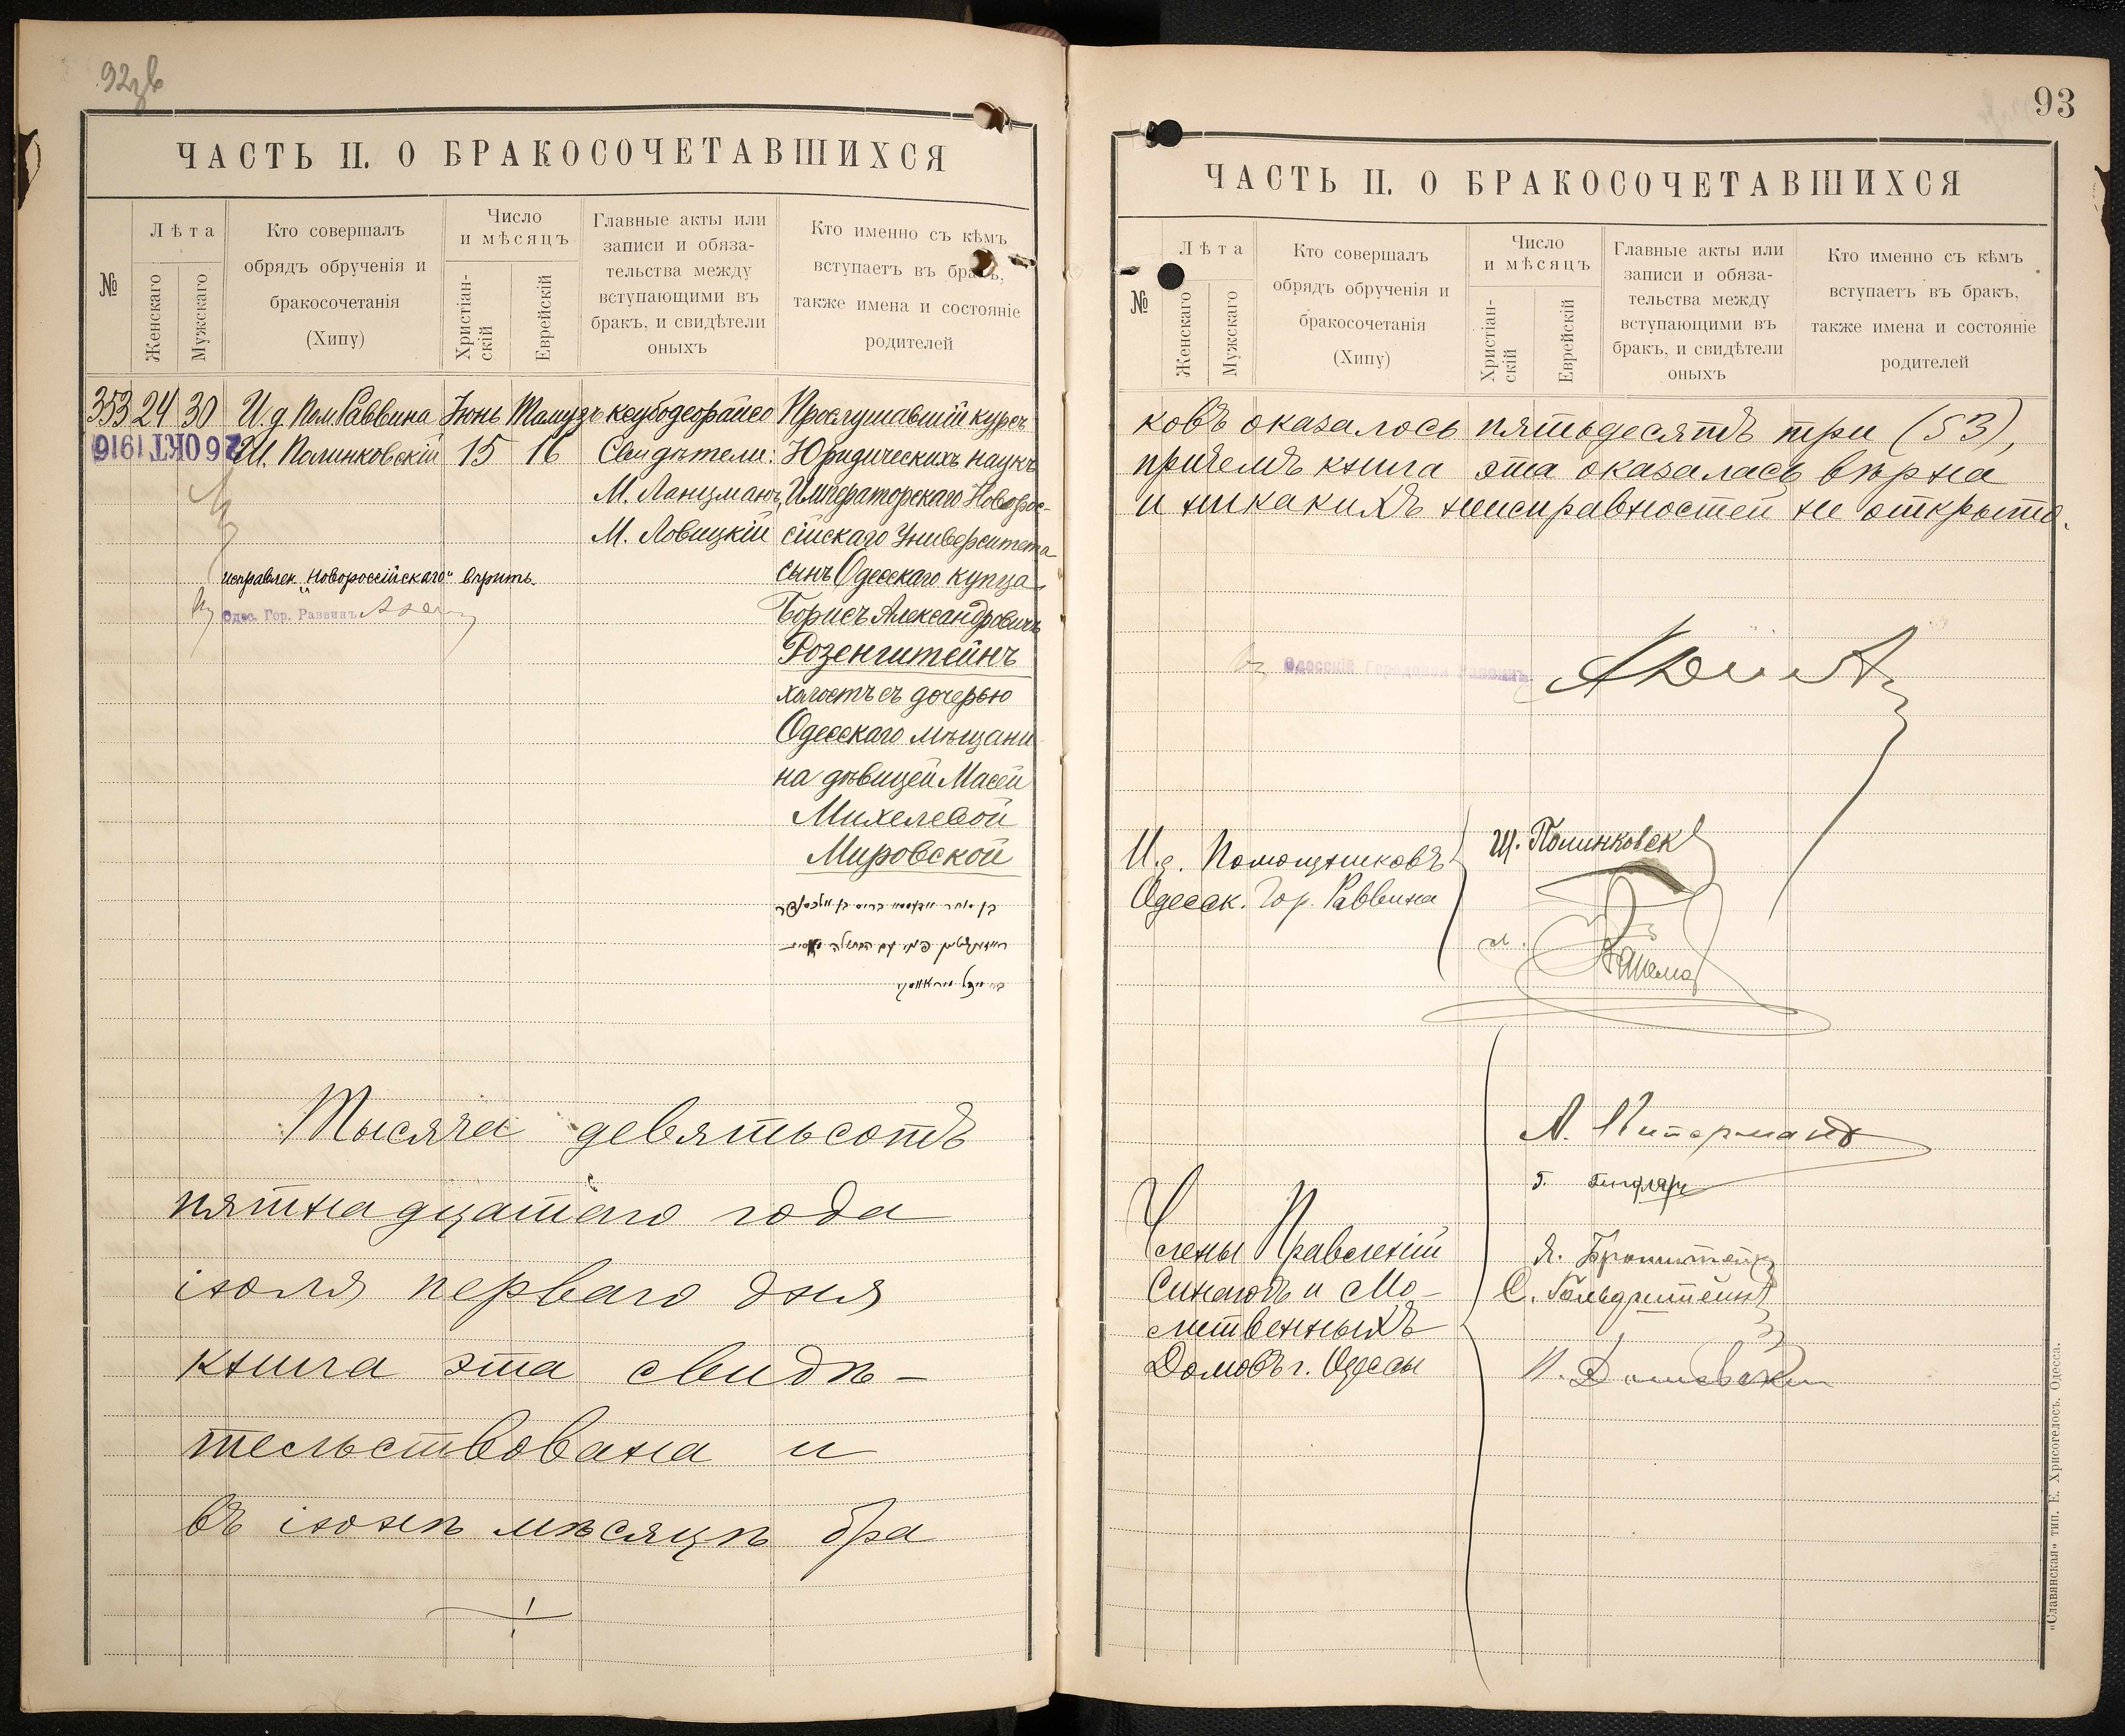 92
ЧАСТЬ II. О БРАКОСОЧЕТАВШИХСЯ
№
Лѣта
Женскаго
Мужскаго
Кто совершалъ
обрядъ обрученія и
бракосочетанія
(Хипу)
Число
и мѣсяцъ
Христіан-
скій
Еврейскій
Главные акты или
записи и обяза-
тельства между
вступающими въ
бракъ, и свидѣтели
оныхъ
Кто именно съ кѣмъ
вступаетъ въ бракъ,
также имена и состояніе
родителей
353 24 30 И. д. Пом. Раввина Іюнь Тамузъ Прослушавшій курсъ
26 ОКТ 1916 Ш. Полинковскій 15 16 Свидѣтели: Юридическихъ наукъ
М. Ланцманъ, Императорскаго Новорос-
М. Ловицкій сійскаго Университета
исправлен. „Новороссійскаго" вѣрить.
сынъ Одесскаго купца
Одес. Гор. Раввинъ
Борисъ Александровичъ
Розенштейнъ
холостъ съ дочерью
Одесскаго мѣщани
на дѣвицей Масей
Михелевой
Мировской
Тысяча девятьсотъ
пятнадцатаго года
іюля перваго дня
книга эта свидѣ-
тельствована и
въ іюнѣ мѣсяцѣ бра
93
ЧАСТЬ II. О БРАКОСОЧЕТАВШИХСЯ
№
Лѣта
Женскаго
Мужскаго
Кто совершалъ
обрядъ обрученія и
бракосочетанія
(Хипу)
Число
и мѣсяцъ
Христіан-
скій
Еврейскій
Главные акты или
записи и обяза-
тельства между
вступающими въ
бракъ, и свидѣтели
оныхъ
Кто именно съ кѣмъ
вступаетъ въ бракъ,
также имена и состояніе
родителей
ковъ оказалось пятьдесятъ три (53),
причемъ книга эта оказалась вѣрна
и никакихъ неисправностей не открыто.
Одесскій Городовой Раввинъ
И. д. Помощниковъ
Одесск. Гор. Раввина
Ш. Полинковск
Члены Правленій
Синагогъ и Мо-
литвенныхъ
Домовъ г. Одессы
Л. Питерманъ
Я. Бронштейн
С. Гольдштейнъ
«Славянская» тип. Е. Хрисогелосъ. Одесса.